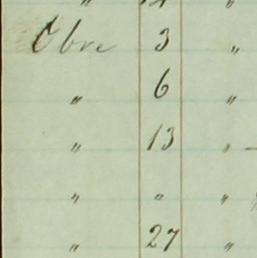 " "
Obre 3 "
" 6 "
" 13 "
" " "
" 27 "